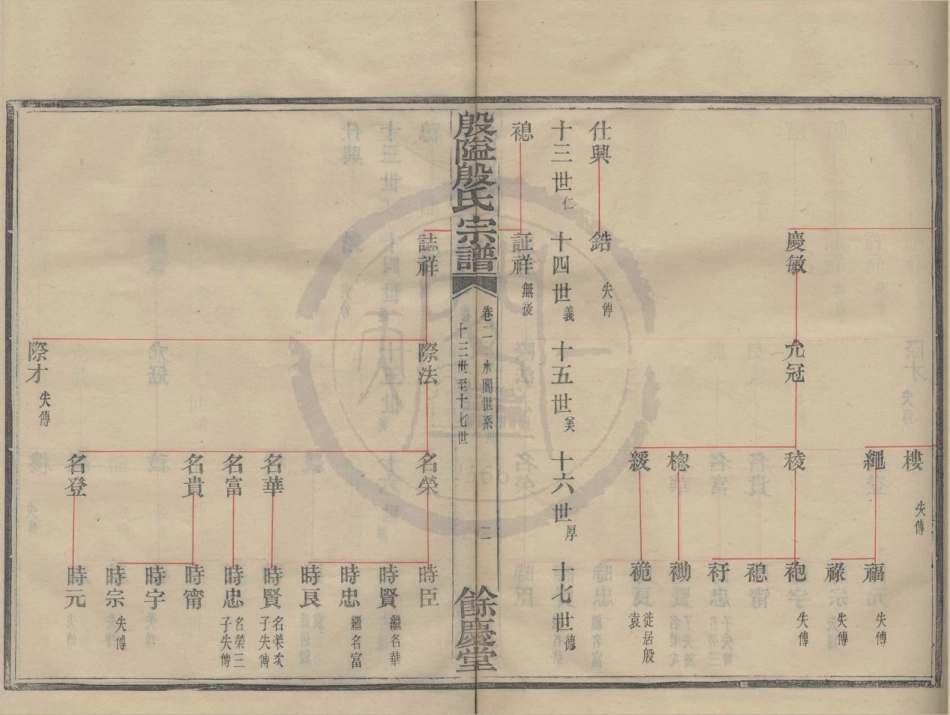 樓 失傳
繩
福 失傳
祿 失傳
慶敏
允冠
稜
袍 失傳
䄄
䄨
楤
褬
緩
袘 徙居殷袁
仕興
鋯 失傳
十三世 仁
十四世 義
十五世 美
十六世 厚
十七世 德
䄄
証祥 無後
殷隘殷氏宗譜
卷二 水閣世系
十三世至十七世
二
餘慶堂
誌祥
際法
名榮
時臣
時賢 繼名華
時忠 繼名富
時良
名華
時賢 名榮次子失傳
名富
時忠 名榮三子失傳
名貴
時甯
時宇
時宗 失傳
名登
時元
際才 失傳